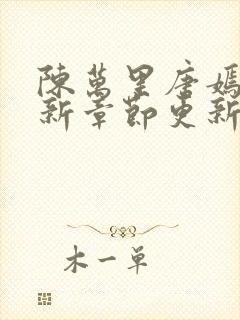 陳萬里唐嫣
新章節更新
木一单